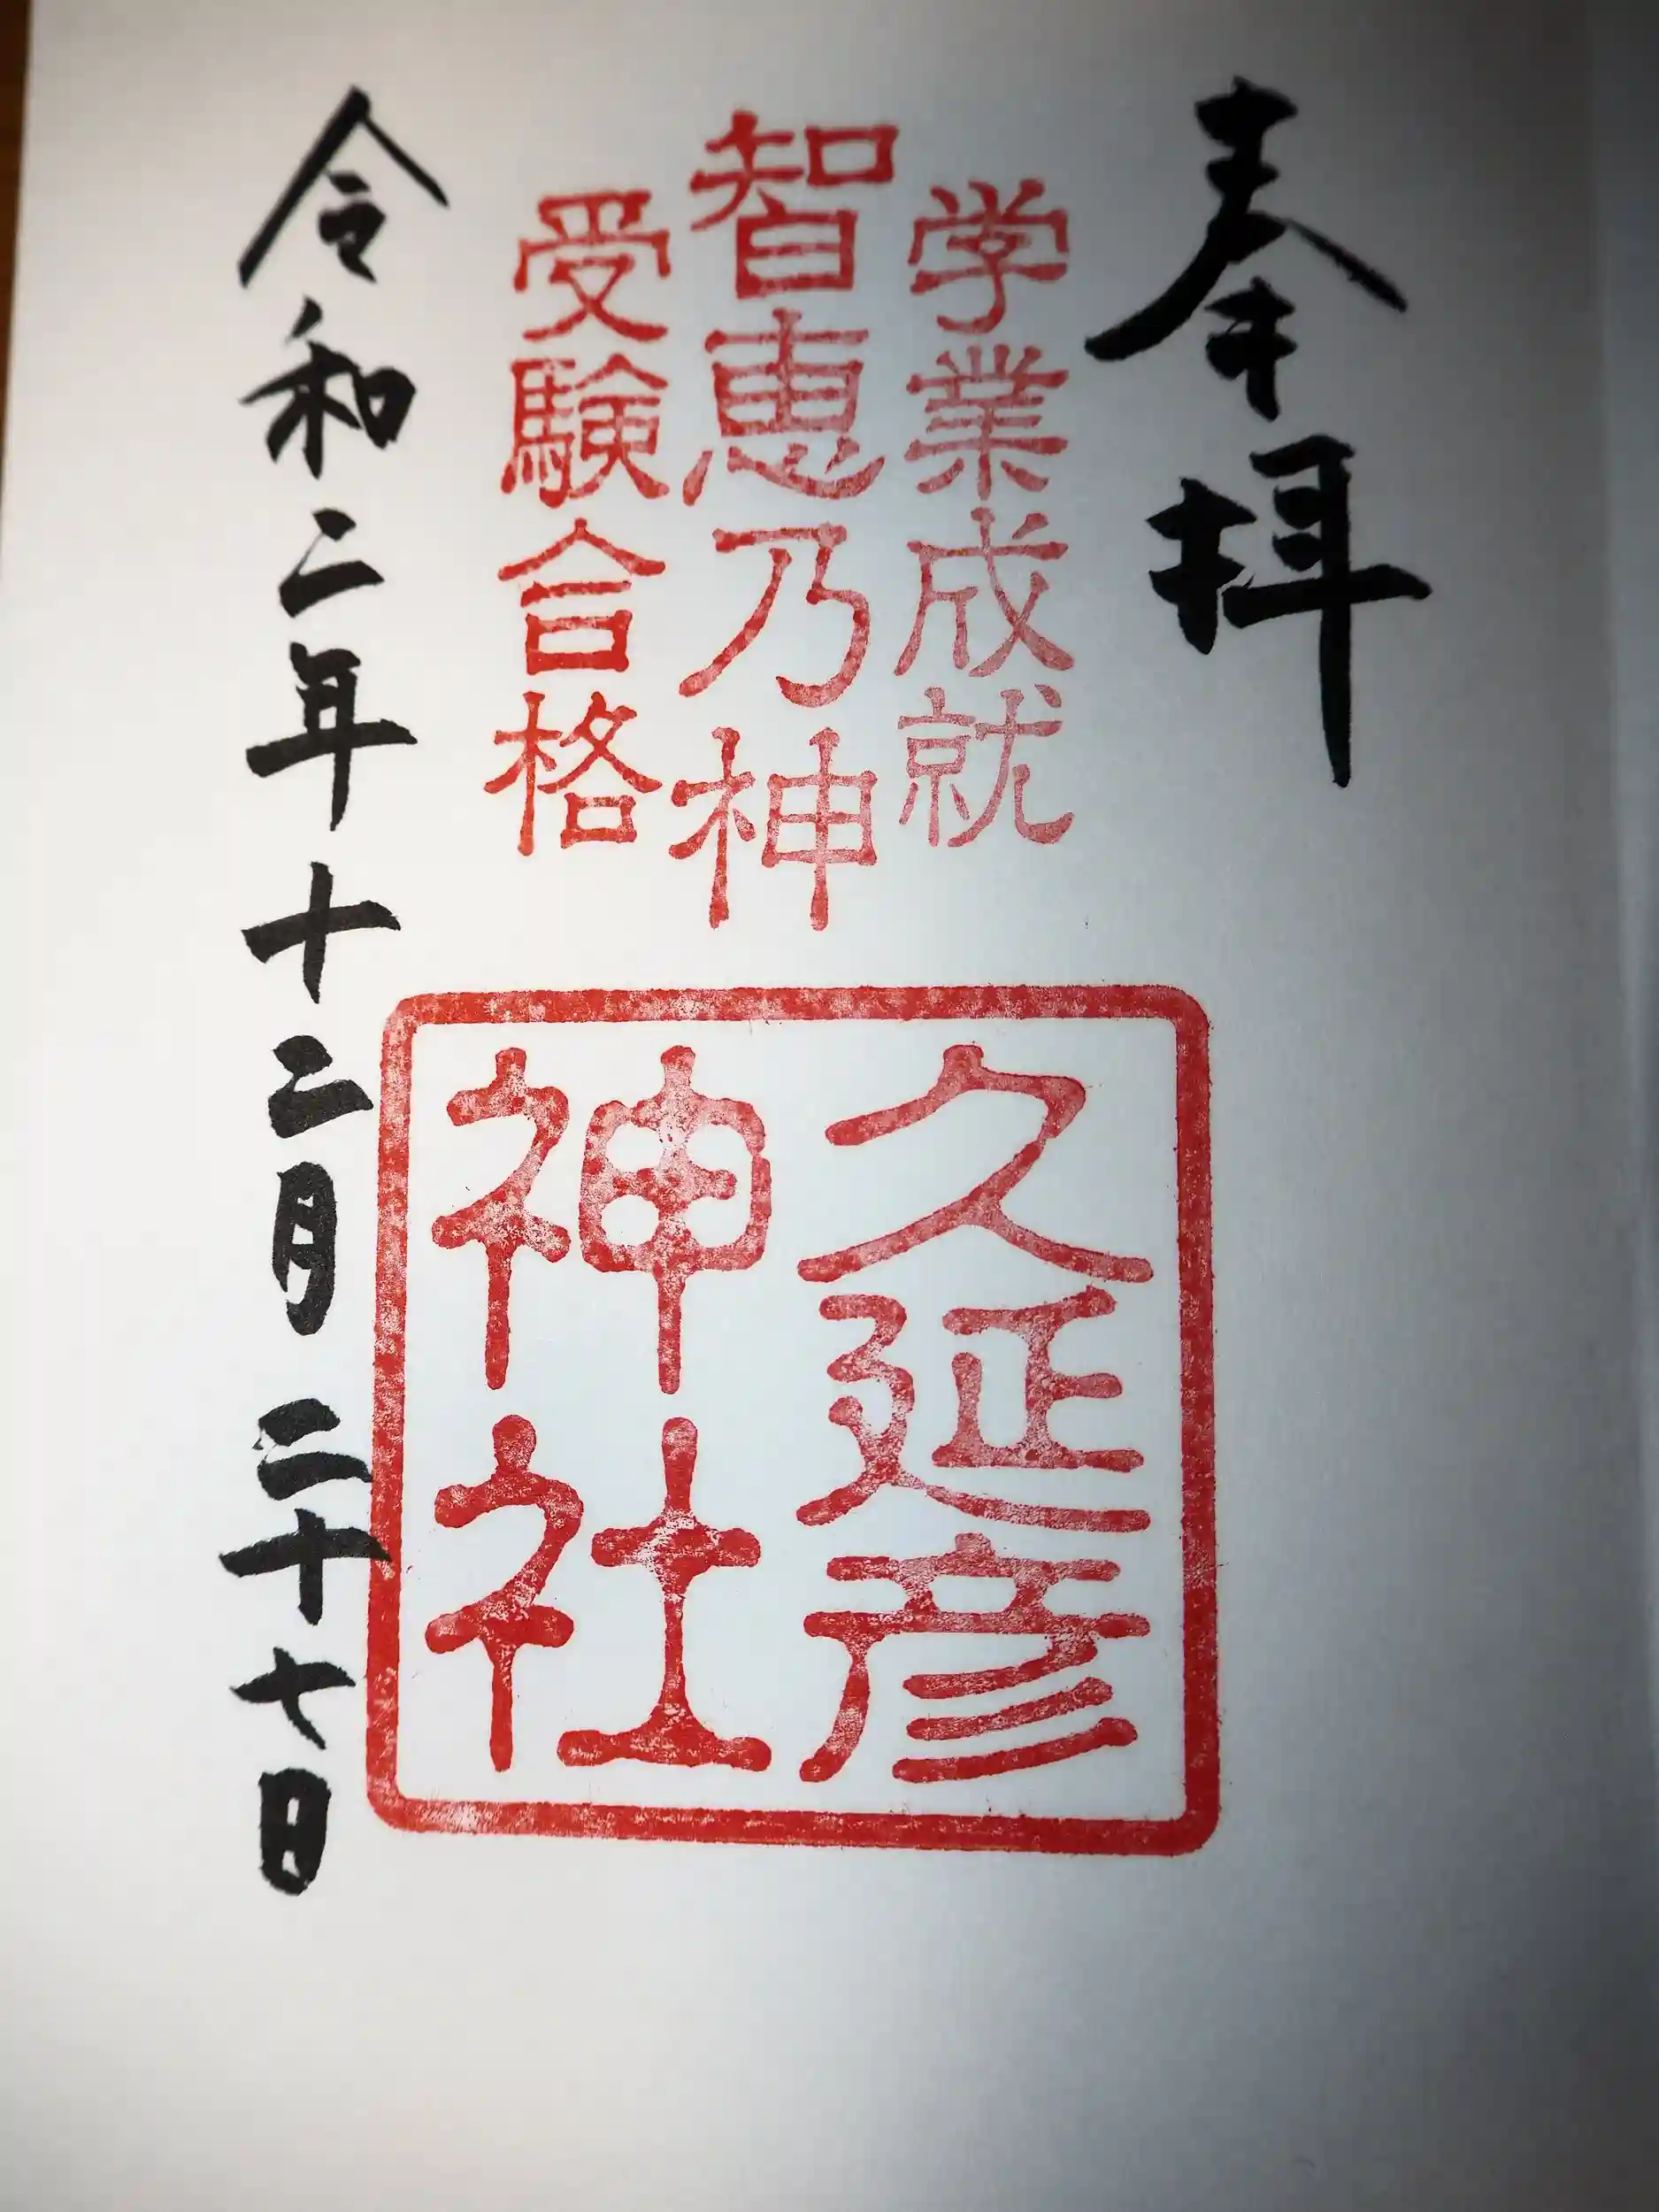 奉拝
学業成就
智恵乃神
受験合格
久延彦
神社
令和二年十二月二十七日